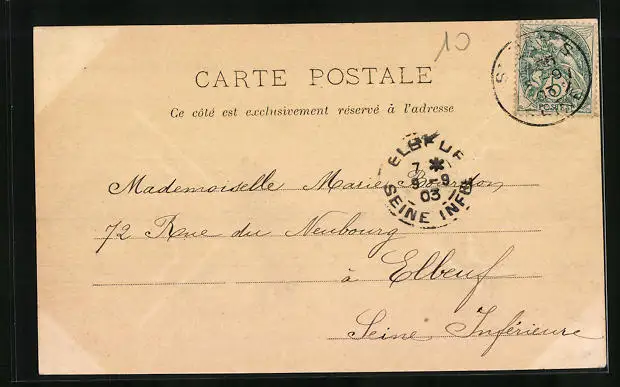 10
CARTE POSTALE
Ce côté est exclusivement réservé à l'adresse
ELBEUF
7 *
9-9
03
SEINE INFRE
Mademoiselle Marie Bourdon
72 Rue du Neubourg
à Elbeuf
Seine Inférieure